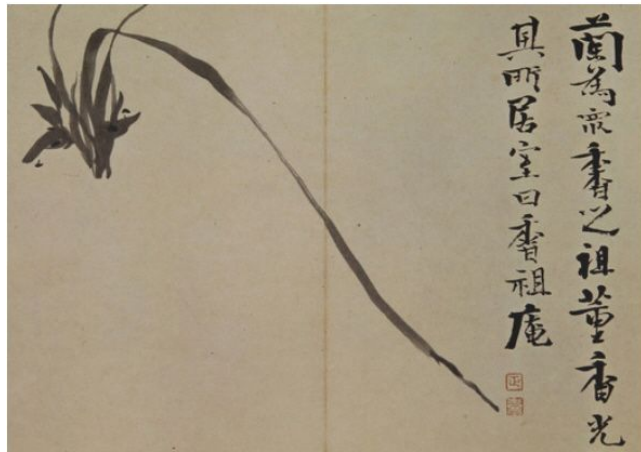 蘭為衆香之祖董香光
其所居室曰香祖庵